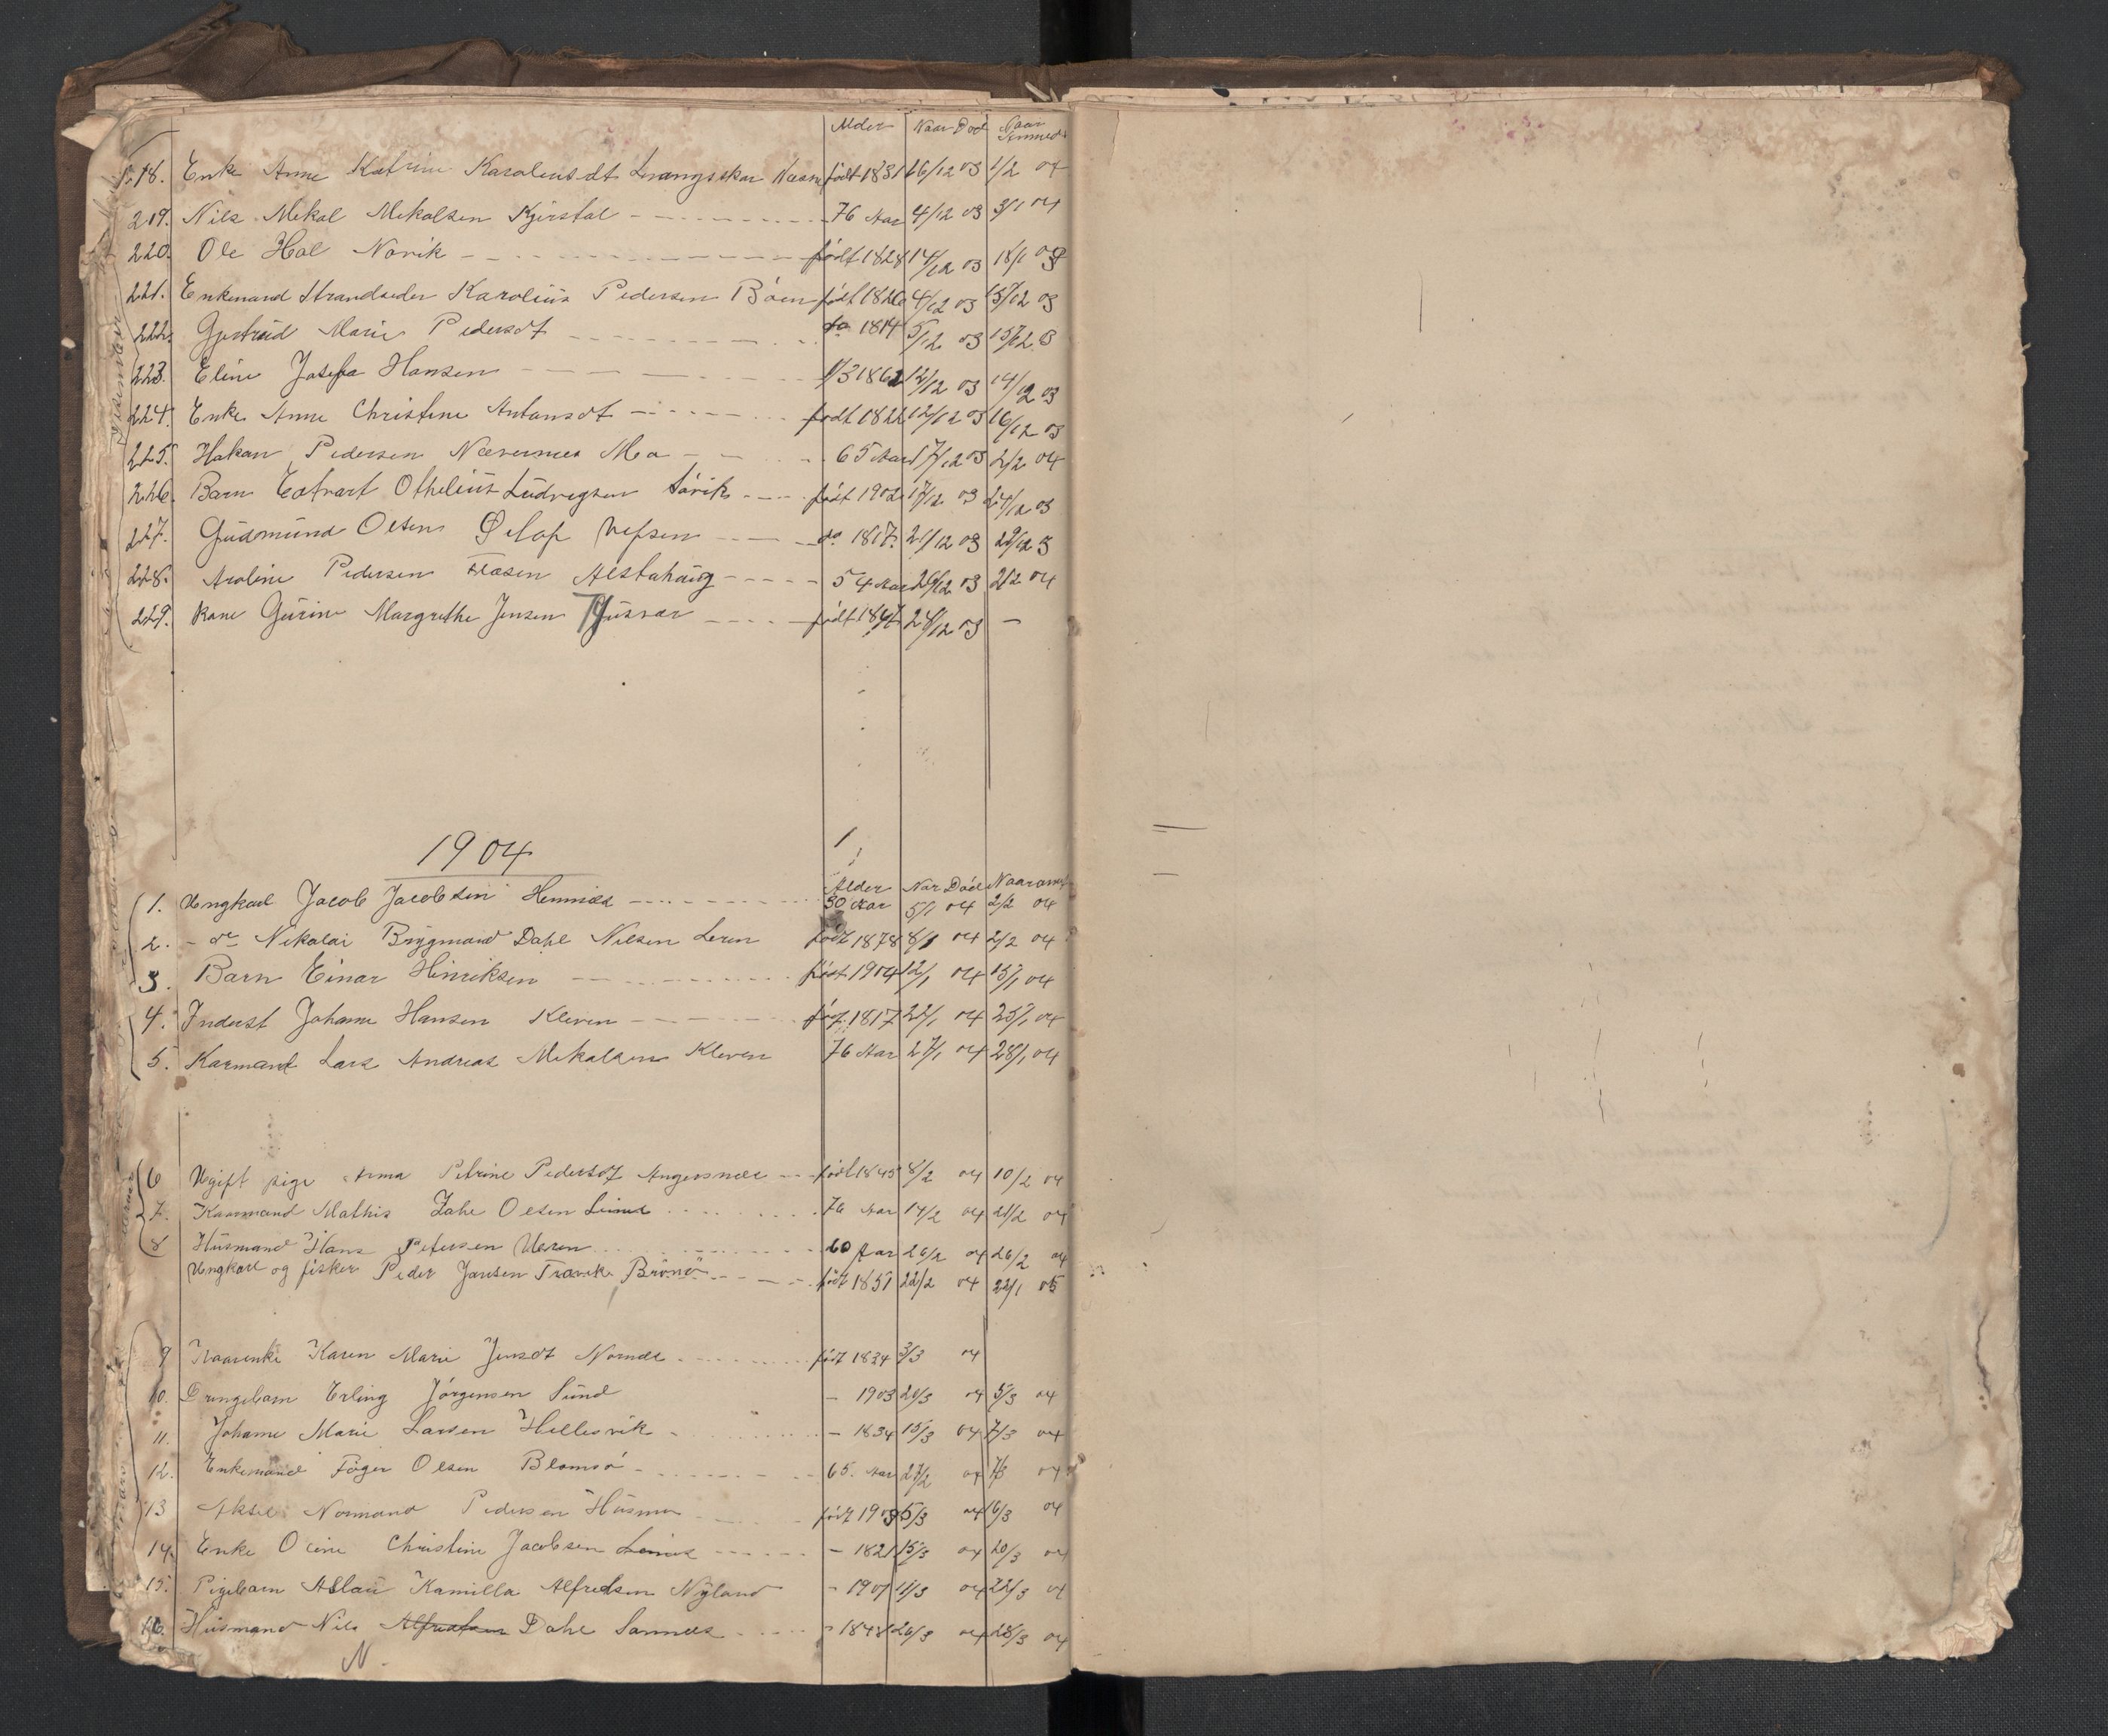 Alder Naar Död Naar Anmeld
218. Enke Anne Katrine Karoliusdt født 1831 16/12 03 1/2 04
219. Nils Mikal Mikalsen 76 Aar 4/12 03 3/1 04
220. Ole Hol Norvik født 1828 14/12 03 18/1 04
221. Enkemand Strandsider Karolius Pedersen Böen født 1826 4/12 03 15/12 03
222. Gjertrud Marie Pedersdt do 1814 5/12 03 15/12 3
223. Eline Josefa Hansen 1/3 1862 12/12 03 14/12 03
224. Enke Anne Christine Antonsdt født 1822 12/12 03 16/12 03
225. Hakan Pedersen Nævernes Mo 65 Aar 17/12 03 2/2 04
226. Barn Othelius Ludvigsen Sörvik født 1902 17/12 03 24/12 03
227. Gudmund Olsen Vefsen do 1817 21/12 03 29/12 3
228. Pedersen Alstahaug 54 Aar 26/12 03 2/2 04
229. Kone Gurine Margrethe Jensen Tjusvær født 24/12 03 —
1904
Alder Nar Död Naar anm
1. Ungkarl Jacob Jacobsen 30 Aar 5/1 04 2/2 04
2. - do Nikolai Dahl Nilsen født 1878 8/1 04 2/2 04
3. Barn Einar Hinriksen født 1904 12/1 04 15/1 04
4. Inderst Johanne Hansen Kleven föd. 1817 22/1 04 25/1 04
5. Karmand Lars Andreas Mikalsen Kleven 76 Aar 27/1 04 28/1 04
6 Ugift pige Anna Petrine Pedersdt Angersnes født 1845 8/2 04 10/2 04
7. Kaarmand Mathis Olsen 76 Aar 14/2 04 21/2 04
8 Husmand Hans Petersen 60 Aar 26/2 04 26/2 04
Ungkarl og fisker Peder Jansen Brönö födt 1851 22/2 04 22/1 05
9 Kaarenke Karen Marie Jensdt född 1824 3/3 04
10. Drengebarn Erling Jörgensen Sund — 1903 20/3 04 5/3 04
11. Johanne Marie Larsen Hellesvik — 1834 15/3 04 7/3 04
12. Enkemand Olsen Blomsö 65. Aar 27/2 04 7/3 04
13 Aksel Normand Pedersen Husmo född 1903 5/3 04 16/3 04
14. Enke Christine Jacobsen — 1821 15/3 04 20/3 04
15. Pigebarn Aslau Kamilla Alfredsen Nyland - 1901 11/3 04 22/3 04
16. Husmand Nils Alfredsen Dahl Sannes - 1848 26/3 04 28/3 04
N.